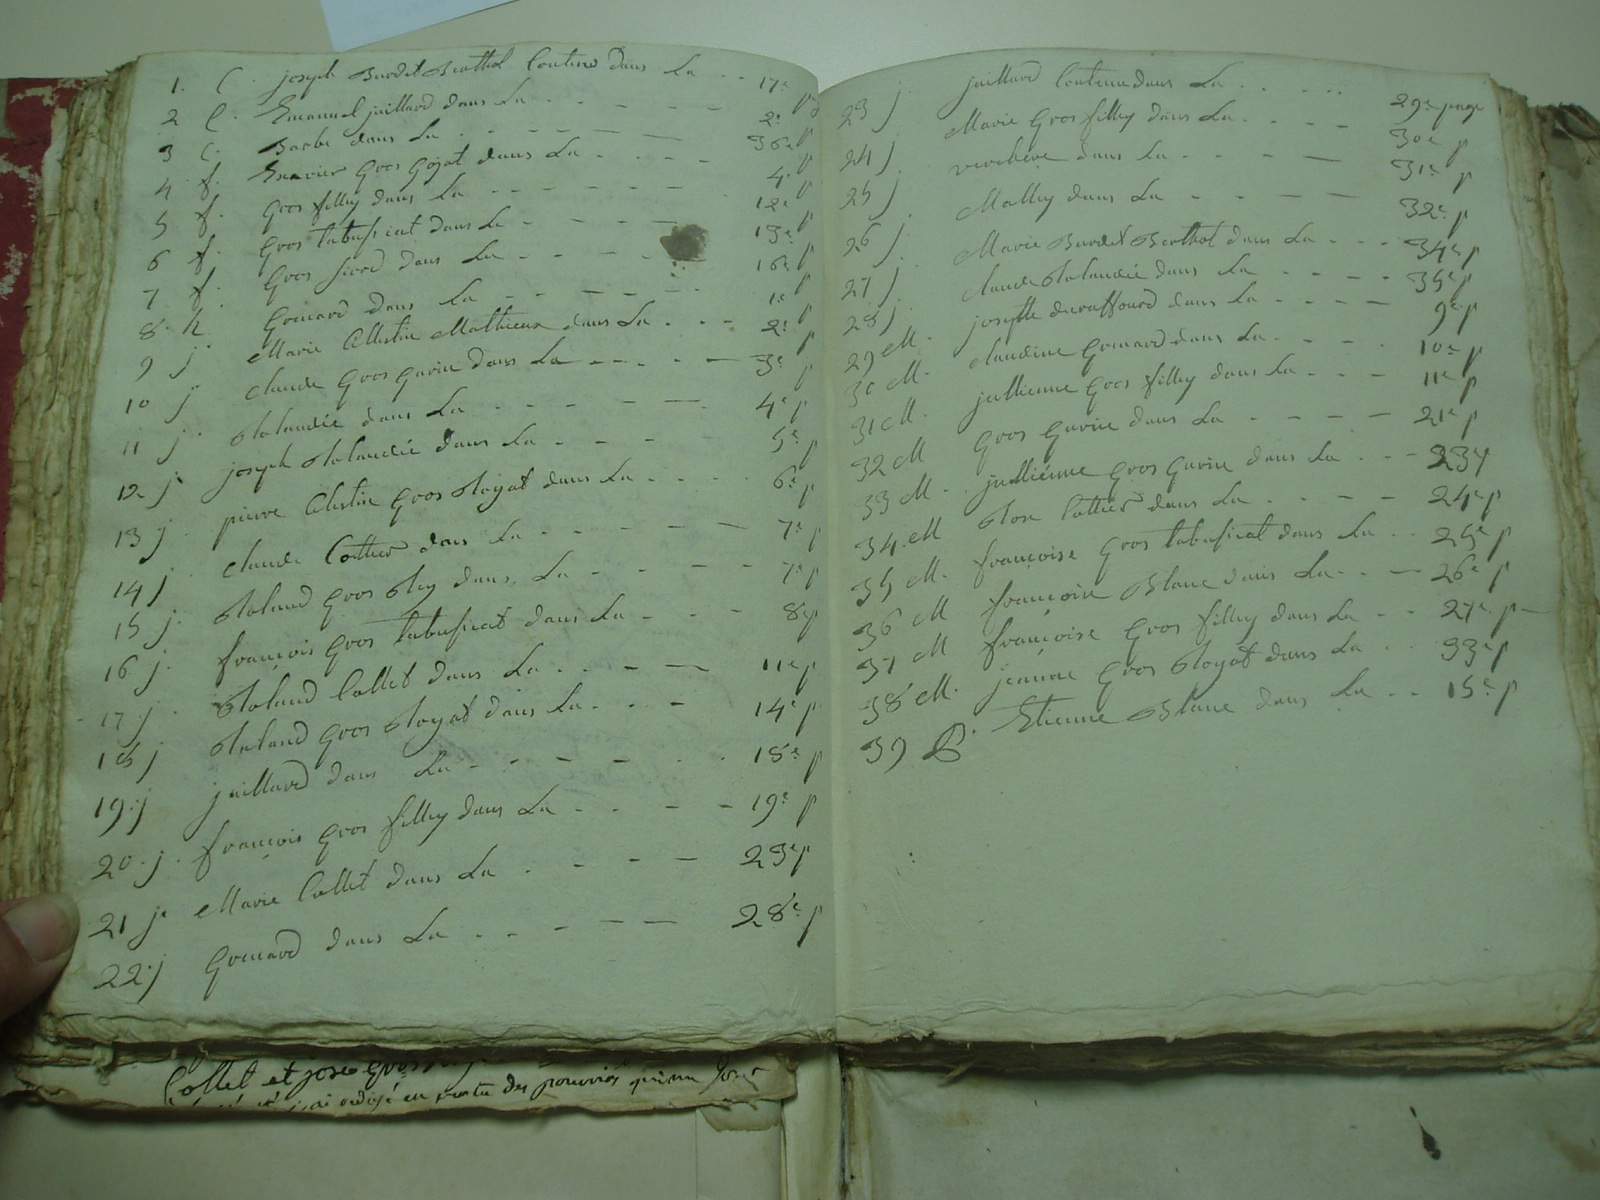 1. C. joseph Burdet Berthol Contenu dans La - - 17e p
2 C. Emanuel juillard dans La - - - - - 2e p
3 C. Barbe dans La - - - - - - 36e p
4 f. gros gojat dans La - - - - 4e p
5 f. gros filley dans La - - - - - - 12e p
6 f. gros tabussiat dans La - - - - - 13e p
7 f. gros dans La - - - - - - 16e p
8. h gromard dans La - - - - - - 1e p
9 j Marie Célestin Mathieux dans La - - - 2e p
10 j Claude gros gurin dans La - - - - - 3e
11 j Rolandée dans La - - - - - 4e p
12 j. joseph Rolandée dans La - - - - 5e p
13 j. pierre Célestin gros Royat dans La - - - - 6e p
14 j Claude Cottier dans La - - - - - 7e p
15 j. Roland gros Rey dans La - - - - - 7e p
16 j. françois gros tabussiat dans La - - - 8e p
17. j. Roland Collet dans La - - - - 11e p
18 j Roland gros Royat dans La - - - 14e p
19. j juillard dans La - - - - - - 15e p
20. j. françois gros filley dans La - - - - 19e p
21 j. Marie Collet dans La - - - - 23e p
22. j gromard dans La - - - - - 28e p
23 j. juillard Contenu dans La - - - - 29e page
24 j. Marie gros filley dans La - - - - 30e p
25 j dans La - - - - 31e p
26 j. Malley dans La - - - - 32e p
27 j. Marie Burdet Berthot dans La - - - 34e p
28 j. Claude Rolandée dans La - - - - 35e p
29 M. josepte duraffourd dans La - - - - 9e p
30 M. Claudine gromard dans La - - - - 10e p
31 M. jullienne gros filley dans La - - - 11e p
32 M gros gurin dans La - - - - 21e p
33 M. jullienne gros gurin dans La - - - 23 p
34. M Rose Cottier dans La - - - - 24e p
35 M. françoise gros tabussiat dans La - - 25e p
36 M françoise Blanc dans La - - - 26e p
37 M françoise gros filley dans La - - 27e p
38 M. jeanne gros Royat dans La - - 33e p
39 Etienne Blanc dans La - - 15e p
Collet et gros
des pouvoirs